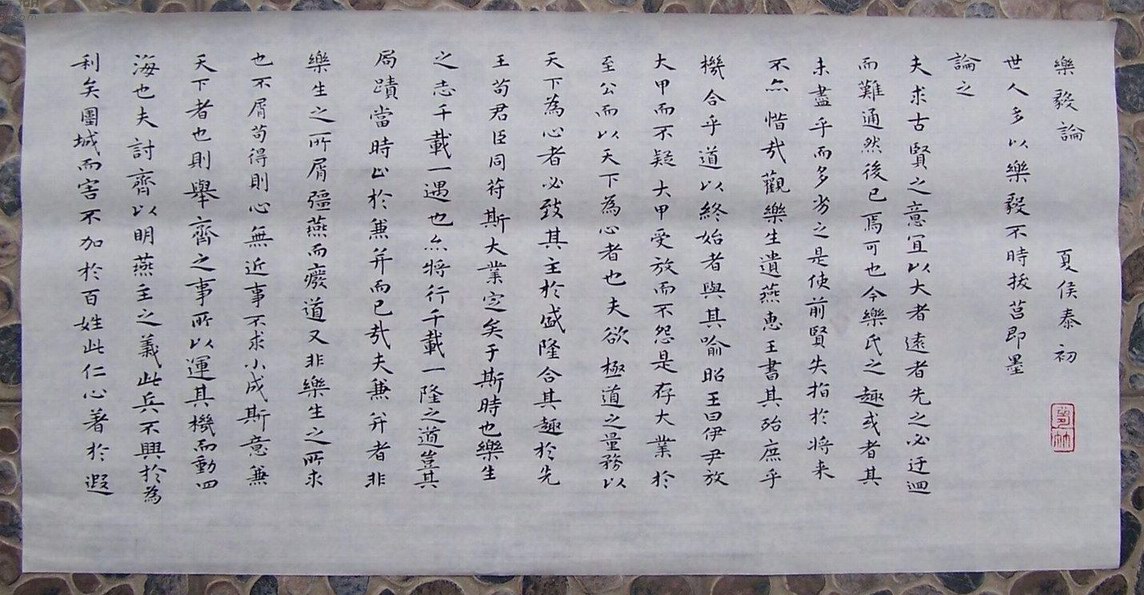 樂毅論 夏侯泰初
世人多以樂毅不時拔莒即墨
論之
夫求古賢之意宜以大者遠者先之必迂迴
而難通然後已焉可也今樂氏之趣或者其
未盡乎而多劣之是使前賢失指於將来
不亦惜哉觀樂生遺燕惠王書其殆庶乎
機合乎道以終始者與其喻昭王曰伊尹放
大甲而不疑大甲受放而不怨是存大業於
至公而以天下為心者也夫欲極道之量務以
天下為心者必致其主於盛隆合其趣於先
王苟君臣同符斯大業定矣于斯時也樂生
之志千載一遇也亦將行千載一隆之道豈其
局蹟當時止於兼并而已哉夫兼并者非
樂生之所屑彊燕而廢道又非樂生之所求
也不屑苟得則心無近事不求小成斯意兼
天下者也則舉齊之事所以運其機而動四
海也夫討齊以明燕主之義此兵不興於為
利矣圍城而害不加於百姓此仁心著於遐